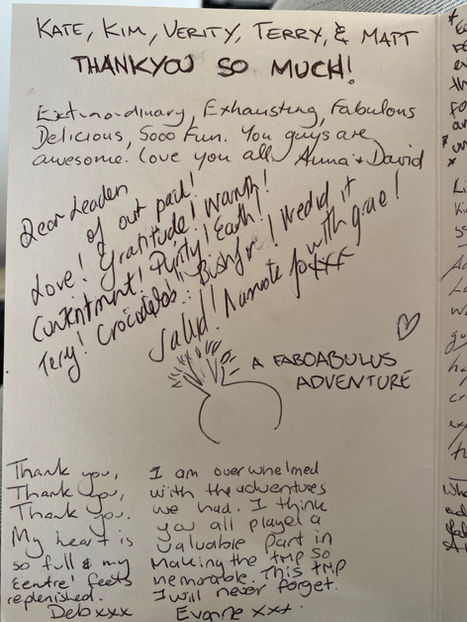 KATE, KIM, VERITY, TERRY, & MATT
THANKYOU SO MUCH!
Extraordinary, Exhausting, Fabulous
Delicious, Sooo Fun. You guys are
awesome. Love you all Anna + David
Dear Leaders
of our pack!
Love! Gratitude! Warmth!
Contentment! Purity! Earth!
Terry! We did it
with grace!
Salud! Namaste
A FABOABULUS
ADVENTURE
Thank you,
Thank you,
Thank you.
My heart is
so full & my
'centre' feels
replenished.
Deb xxx
I am overwhelmed
with the adventures
we had. I think
you all played a
valuable part in
making the trip so
memorable. This trip
I will never forget.
xxx.